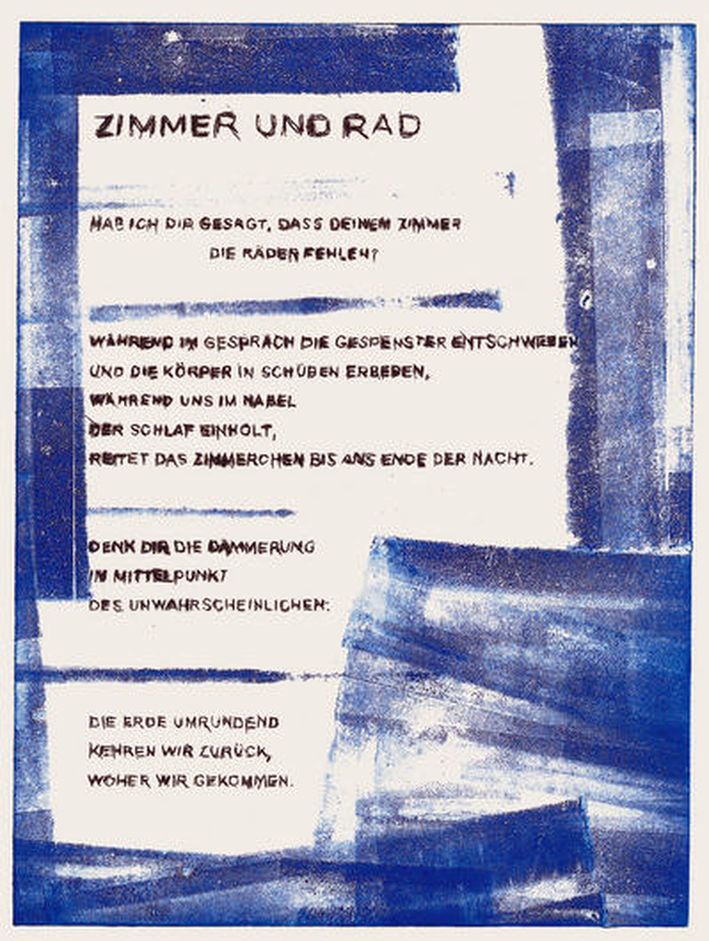 ZIMMER UND RAD
HAB ICH DIR GESAGT, DASS DEINEM ZIMMER
DIE RÄDER FEHLEN?
WÄHREND IM GESPRÄCH DIE GESPENSTER ENTSCHWEBEN
UND DIE KÖRPER IN SCHÜBEN ERBEBEN,
WÄHREND UNS IM NABEL
DER SCHLAF EINHOLT,
REITET DAS ZIMMERCHEN BIS ANS ENDE DER NACHT.
DENK DIR DIE DÄMMERUNG
IM MITTELPUNKT
DES UNWAHRSCHEINLICHEN:
DIE ERDE UMRUNDEND
KEHREN WIR ZURÜCK,
WOHER WIR GEKOMMEN.